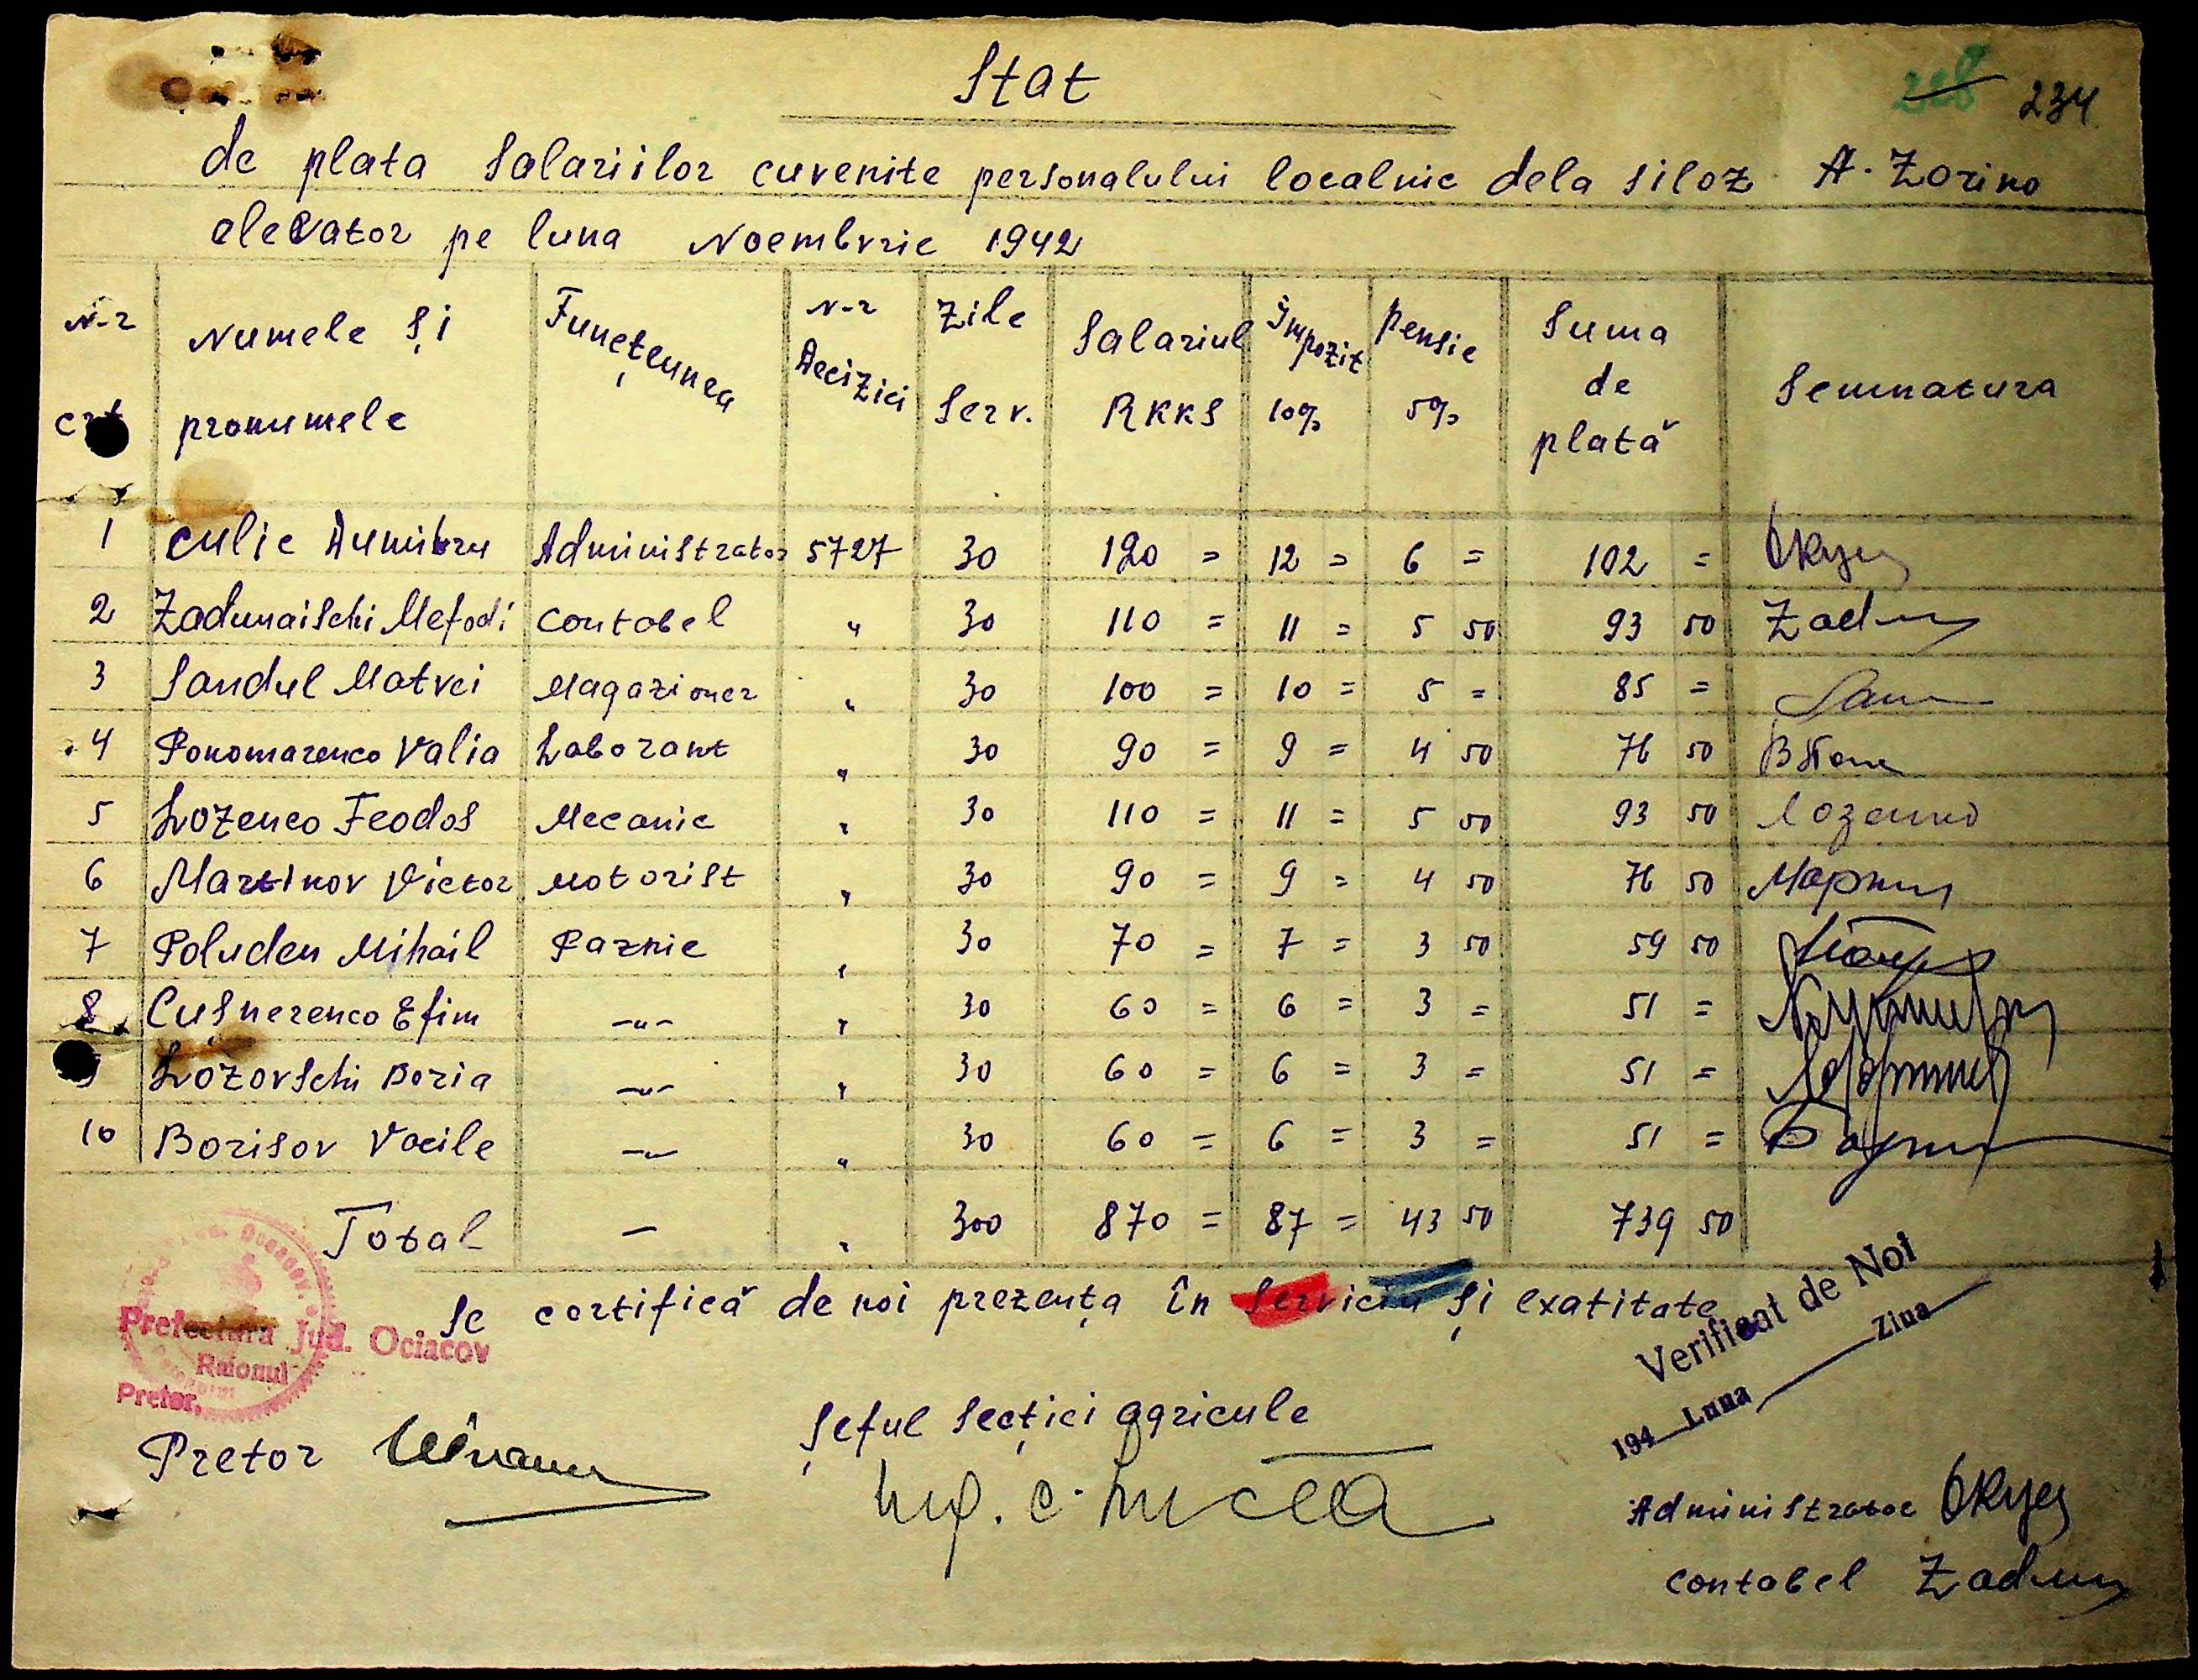 Stat
228 234
de plata Salariilor cuvenite personalului localnic dela siloz A. Zorino
elevator pe luna Noembrie 1942
N-r crt Numele și pronumele Funcțiunea N-r Decizici Zile Serv. Salariul RKKS Impozit 10% Pensie 5% Suma de plată Semnatura
1 Culic Dumitru Administrator 5727 30 120 = 12 = 6 = 102 =
2 Zadunaischi Mefodi Contabel " 30 110 = 11 = 5 50 93 50 Zadun
3 Sandul Matvei Magazioner " 30 100 = 10 = 5 = 85 = San
4 Ponomarenco Valia Laborant " 30 90 = 9 = 4 50 76 50 ВПоном
5 Lozenco Feodos Mecanic " 30 110 = 11 = 5 50 93 50 Лозенко
6 Martinov Victor Motorist " 30 90 = 9 = 4 50 76 50 Мартин
7 Poluden Mihail Paznic " 30 70 = 7 = 3 50 59 50
8 Cușnerenco Efim —"— " 30 60 = 6 = 3 = 51 =
9 Lozovschi Boria —"— " 30 60 = 6 = 3 = 51 =
10 Borisov Vacile —"— " 30 60 = 6 = 3 = 51 =
Total — " 300 870 = 87 = 43 50 739 50
Se certifică de noi prezența în serviciu și exatitate
Prefectura Jud. Ociacov
Raionul
Pretor,
Verificat de Noi
194 Luna Ziua
Pretor
Șeful secției agricule
Ing. C. Mircea
Administrator
Contabel Zadun